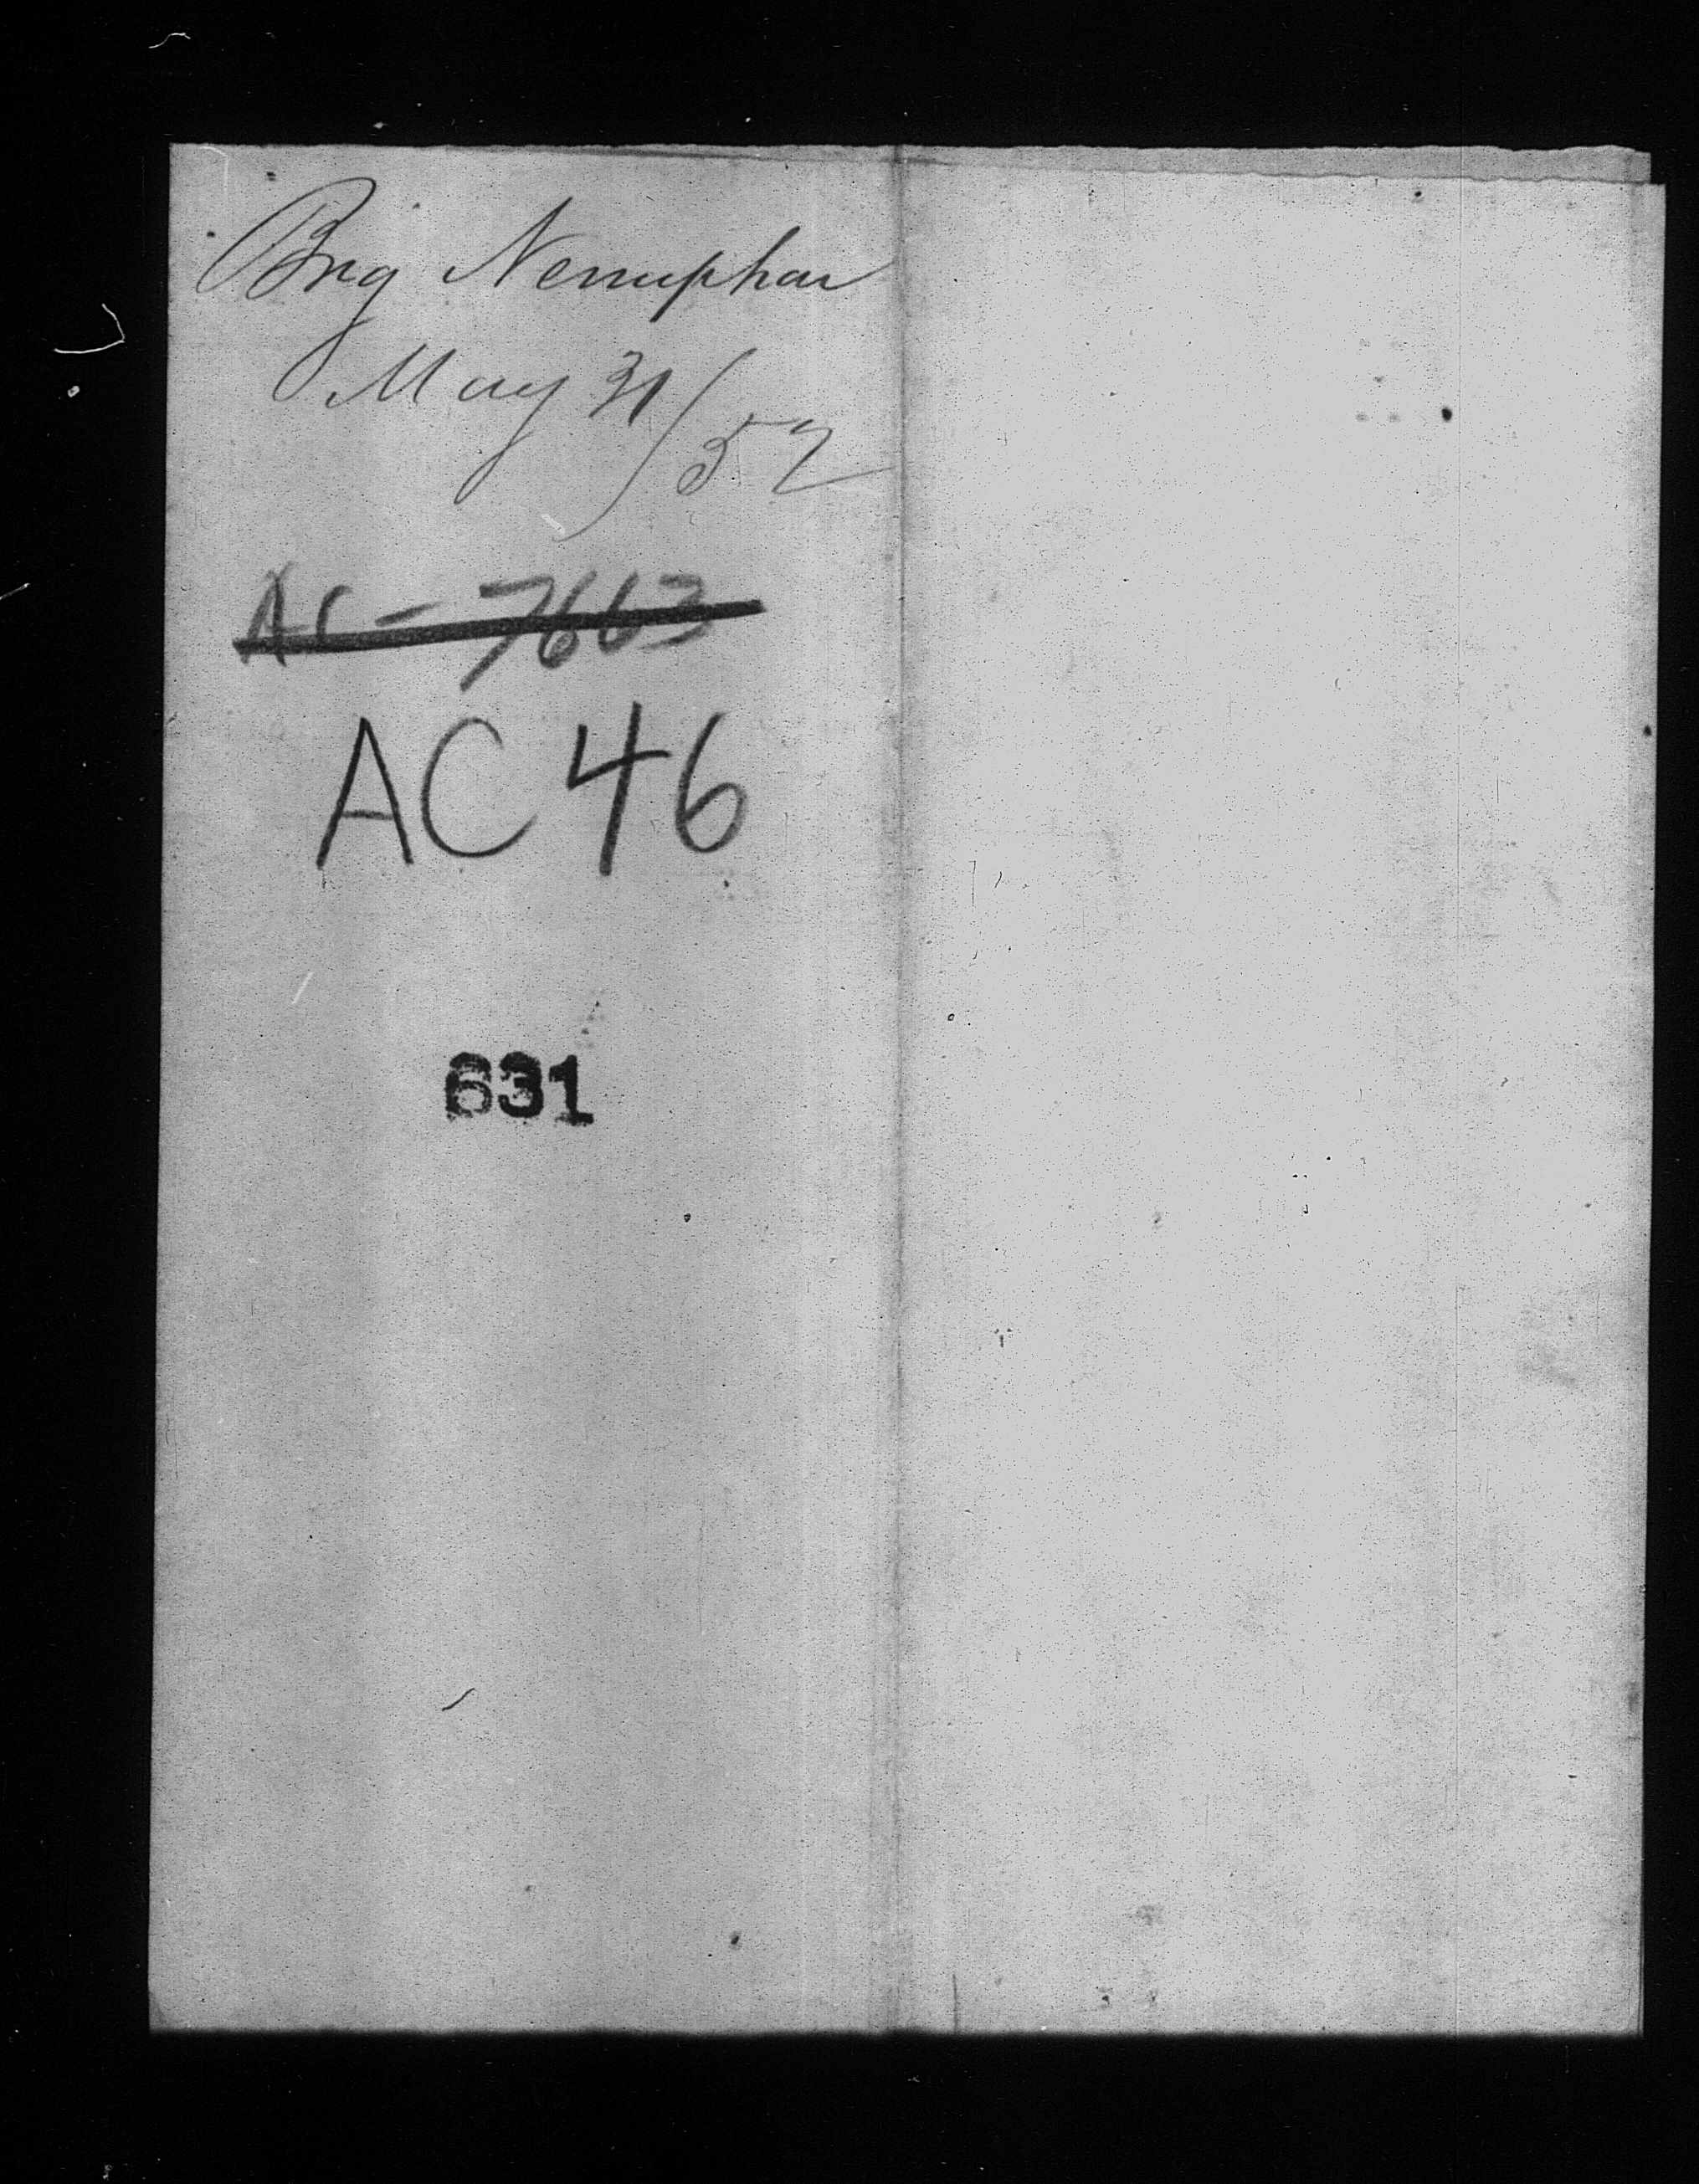 Brig Nenuphar
May 31/52
AC - 7663
AC 46
631